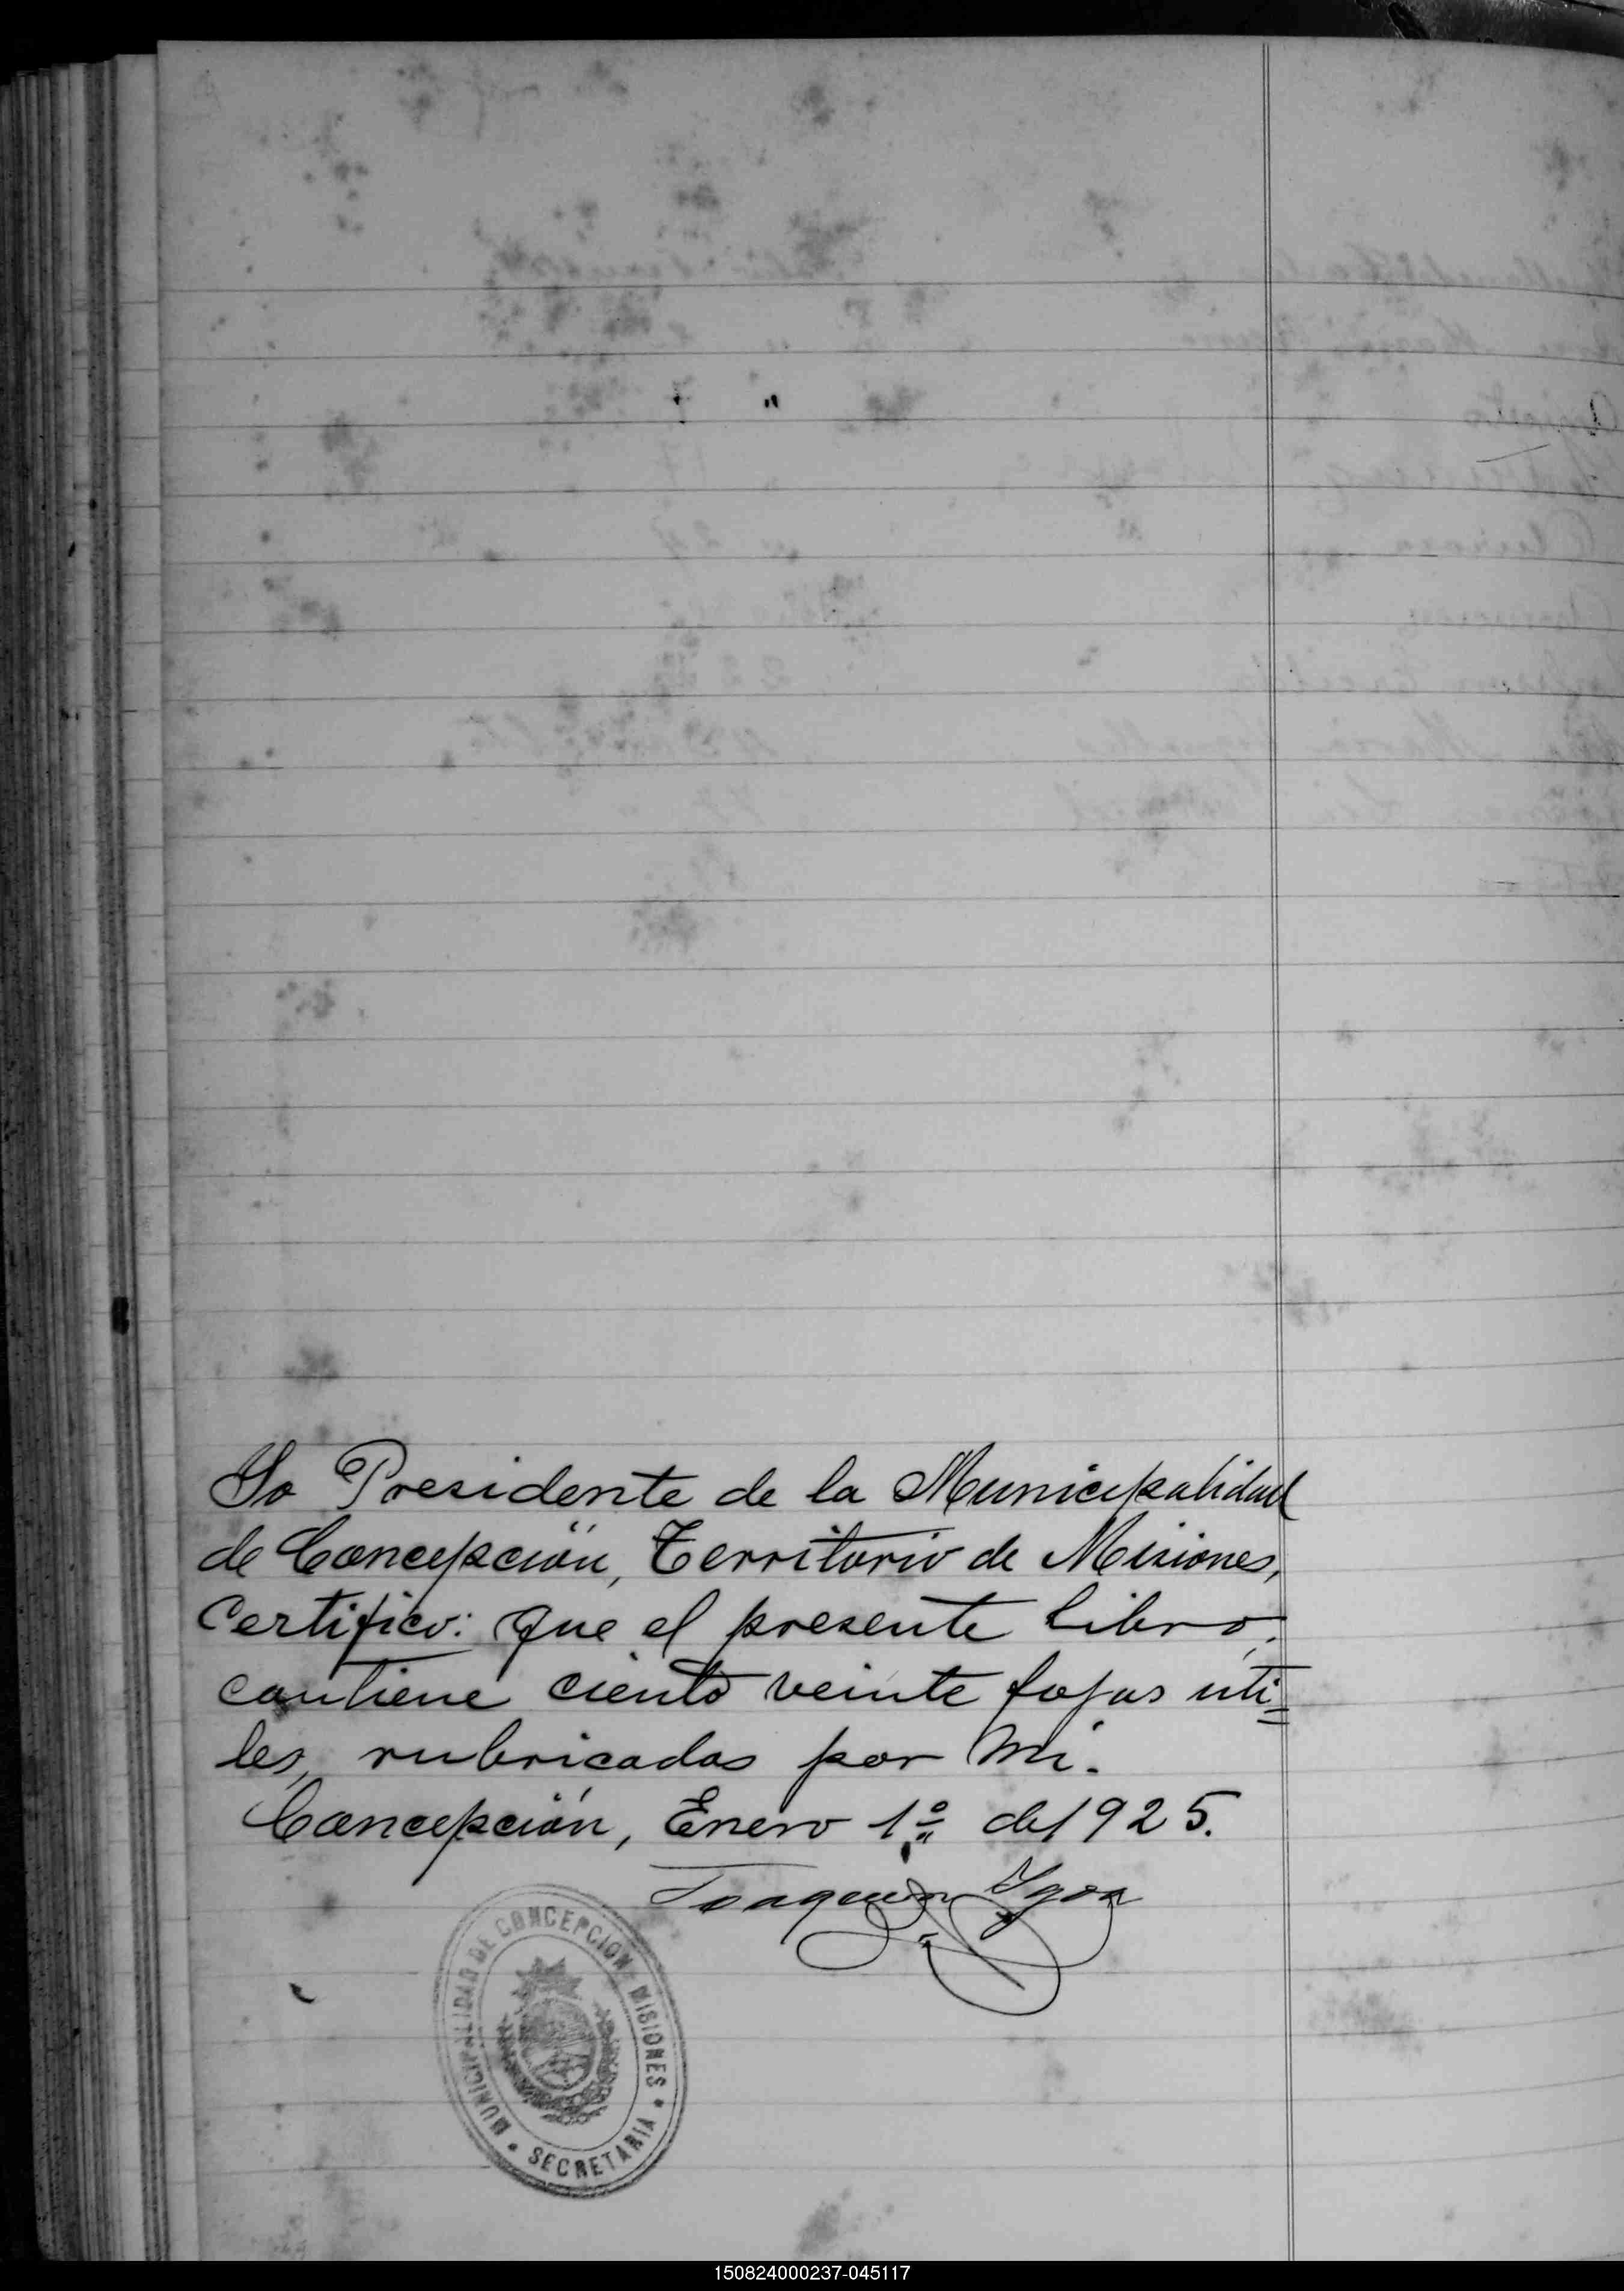 Yo Presidente de la Municipalidad
de Concepción, Territorio de Misiones,
Certifico: que el presente libro,
contiene ciento veinte fojas úti=
les, rubricadas por mi.
Concepción, Enero 1º de 1925.
Joaquin Ygoa
MUNICIPALIDAD DE CONCEPCION MISIONES • SECRETARIA •
150824000237-045117